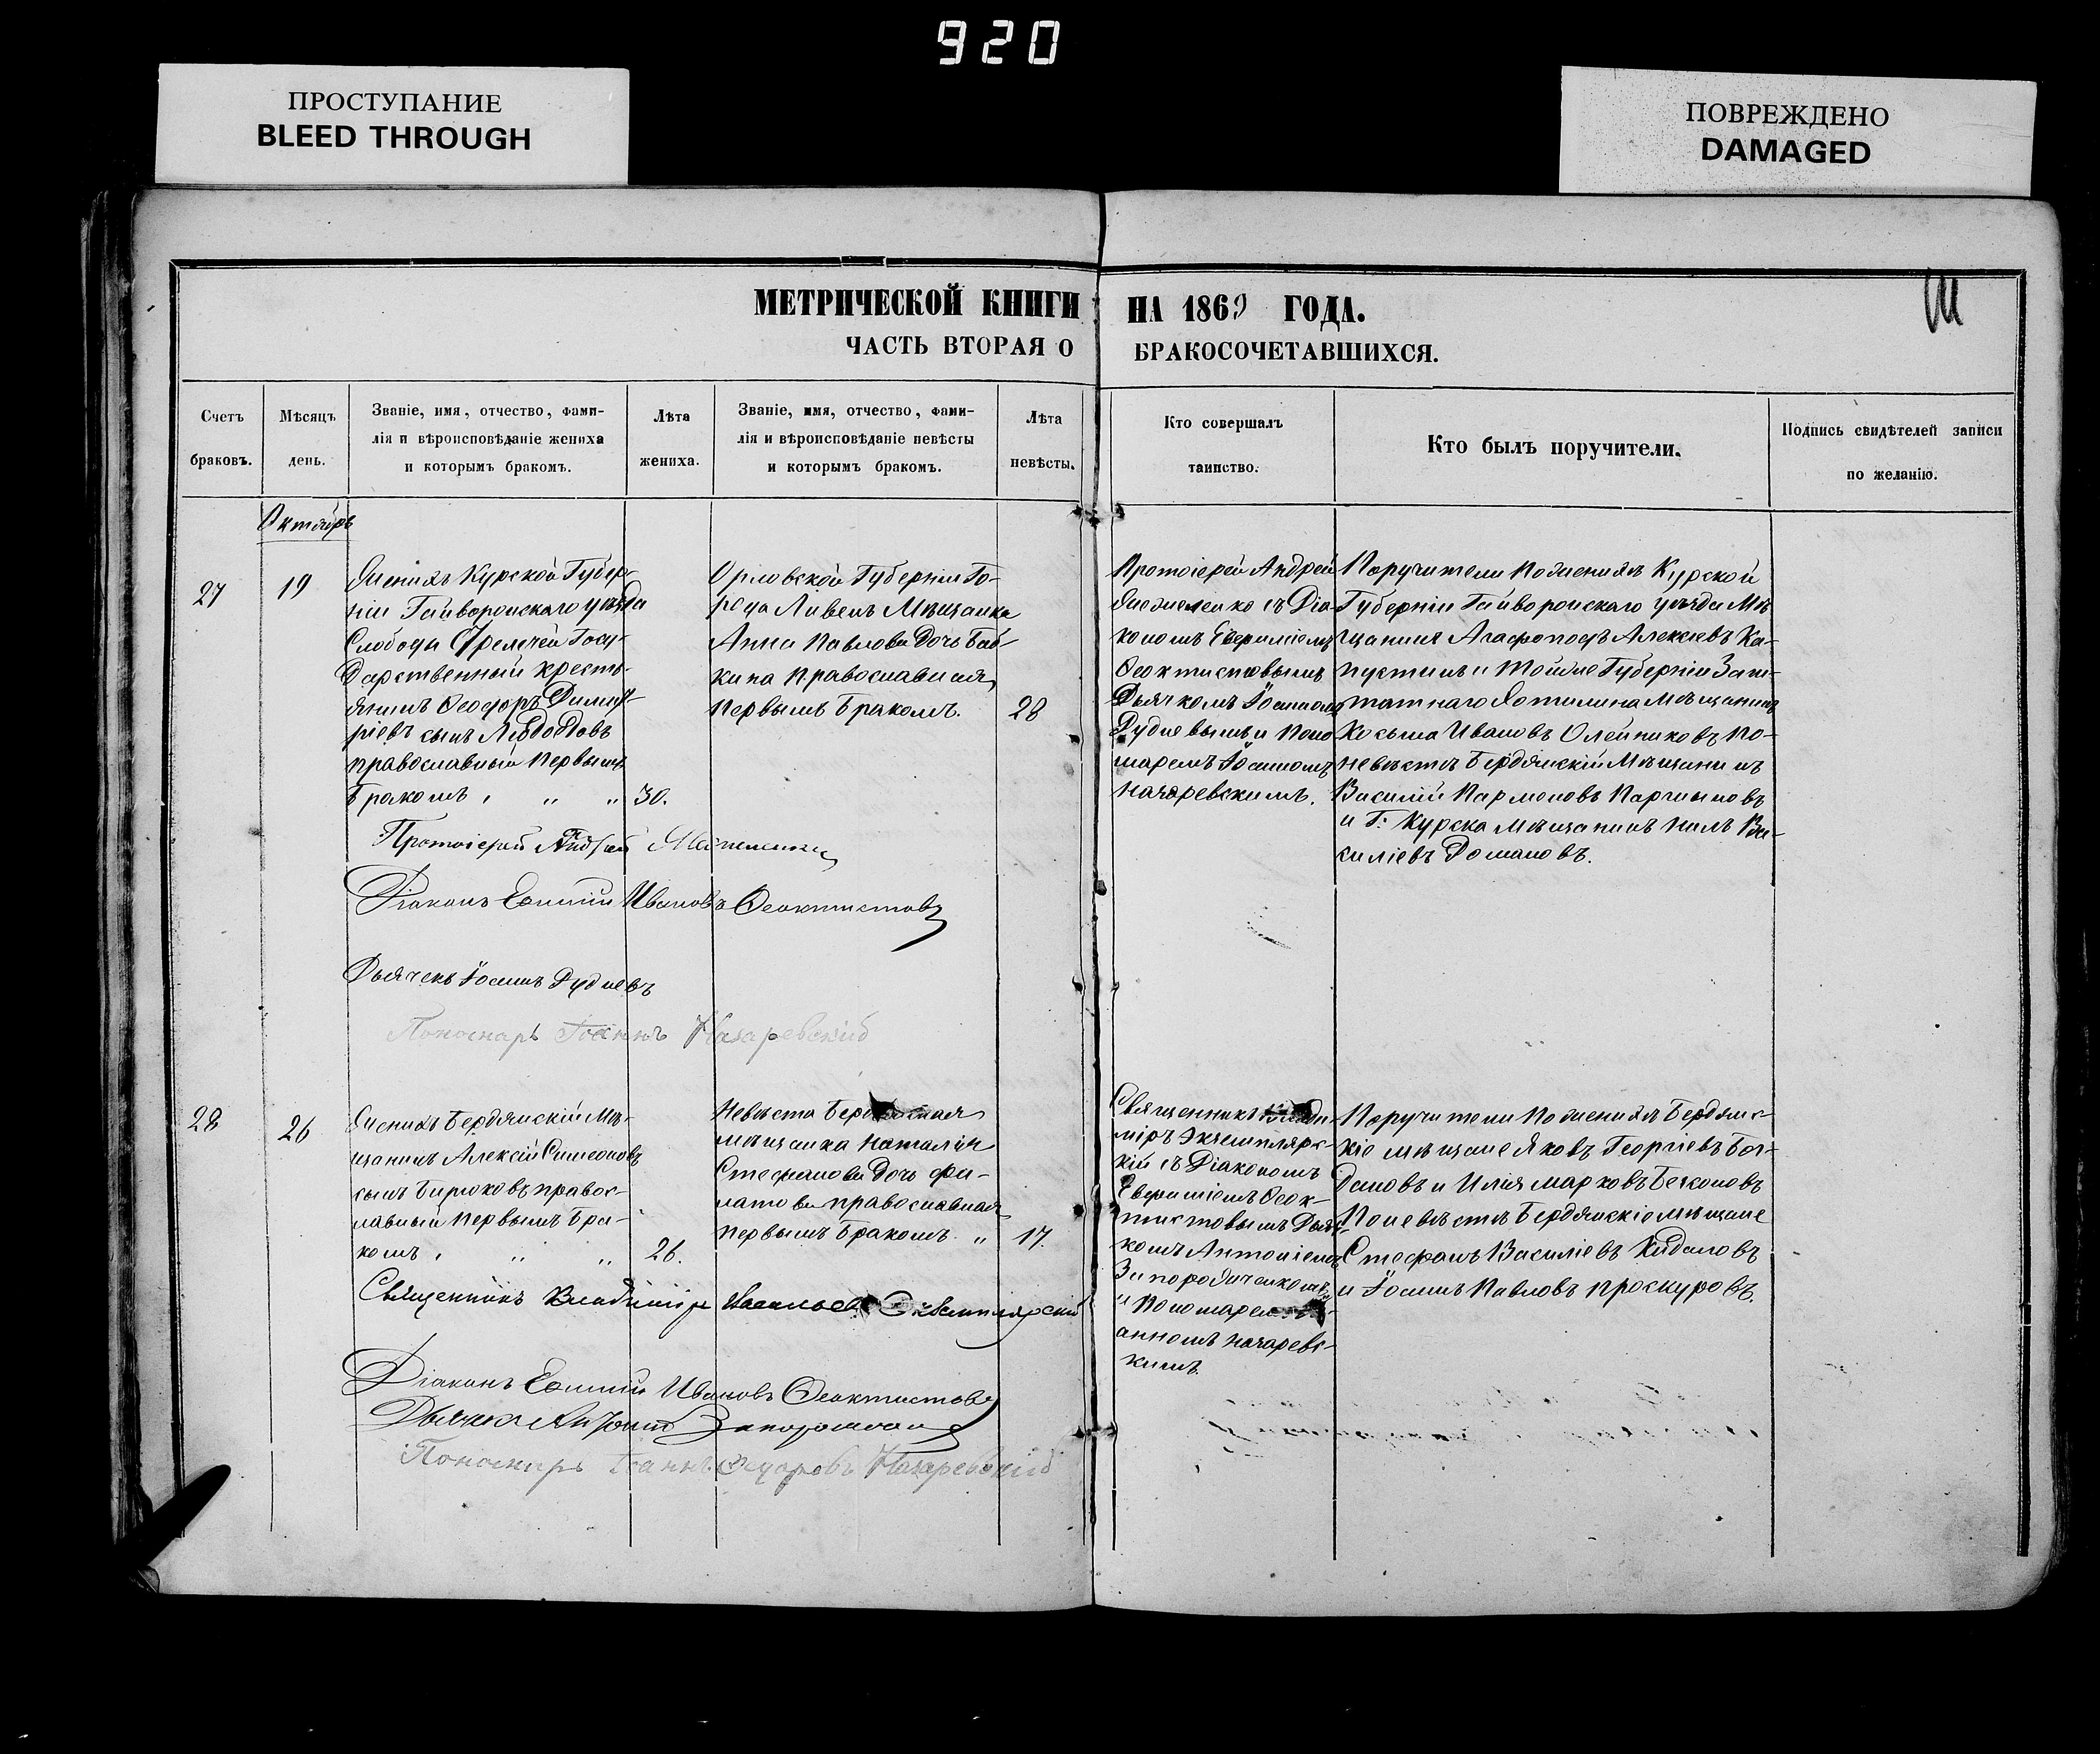 920
ПРОСТУПАНИЕ
BLEED THROUGH
ПОВРЕЖДЕНО
DAMAGED
МЕТРИЧЕСКОЙ КНИГИ НА 1869 ГОДА.
ЧАСТЬ ВТОРАЯ О БРАКОСОЧЕТАВШИХСЯ.
Счетъ
браковъ.
Мѣсяцъ
день.
Званіе, имя, отчество, фами-
лія и вѣроисповѣданіе жениха
и которымъ бракомъ.
Лѣта
жениха.
Званіе, имя, отчество, фами-
лія и вѣроисповѣданіе невѣсты
и которымъ бракомъ.
Лѣта
невѣсты.
Кто совершалъ
таинство.
Кто былъ поручители.
Подпись свидѣтелей записи
по желанію.
Октябрь
27
19
Женихъ Курской Губер-
ніи Гайворонскаго уѣзда
Слободы Госу-
дарственный кресть-
янинъ Ѳеодоръ Димит-
ріевъ сынъ
православный первымъ
бракомъ , " " 30.
Орловской Губерніи Го-
рода Ливенъ Мѣщанка
Анна Павлова Дочь Баб-
кина Православная
первымъ бракомъ. 28
Протоіерей Андрей
съ Діа-
кономъ Евфиміемъ
Ѳеоктистовымъ
Дьячкомъ Іоанномъ
Рудневымъ и Поно
маремъ Іоанномъ
Назаревскимъ.
Поручители По женихѣ Курской
Губерніи Гайворонскаго уѣзда Мѣ
щанинъ Агафоподъ Алексѣевъ Ка-
пустинъ и той же Губерніи Заш-
татнаго Хотмижска Мѣщанинъ
Козьма Ивановъ Олейниковъ по-
невѣстѣ Бердянскій Мѣщанинъ
Василій Пармоновъ
и Г: Курска мѣщанинъ Нилъ Ва-
силіевъ Домановъ.
Протоіерей Андрей
Діаконъ Евфимій Ивановъ Ѳеоктистовъ
Дьячекъ Іоаннъ Рудневъ
Пономарь Іоаннъ Назаревскій
28
26
Женихъ Бердянскій Мѣ-
щанинъ Алексій Симеоновъ
сынъ Бирюковъ правос-
лавный первымъ бра-
комъ , " " 26.
Невѣста
мѣщанка Наталія
Стефанова Дочь Фи-
латова православная
первымъ бракомъ. " 17.
Священникъ Влади-
міръ Экземплярс-
кій съ Діакономъ
Евфиміемъ Ѳеок-
тистовымъ Дьяч-
комъ Антоніемъ
и Пономаремъ Іо-
анномъ Назаревс-
кимъ.
Поручители По женихѣ Бердянс-
кіе мѣщане Яковъ Георгіевъ Бог-
дановъ и Илія Марковъ
По невѣстѣ Бердянскіе мѣщане
Стефанъ Василіевъ
и Іоаннъ Павловъ Проскуровъ.
Священникъ Владиміръ Васильевъ Экземплярскій
Діаконъ Евфимій Ивановъ Ѳеоктистовъ
Дьячекъ Антоній
Пономарь Іоаннъ Назаревскій